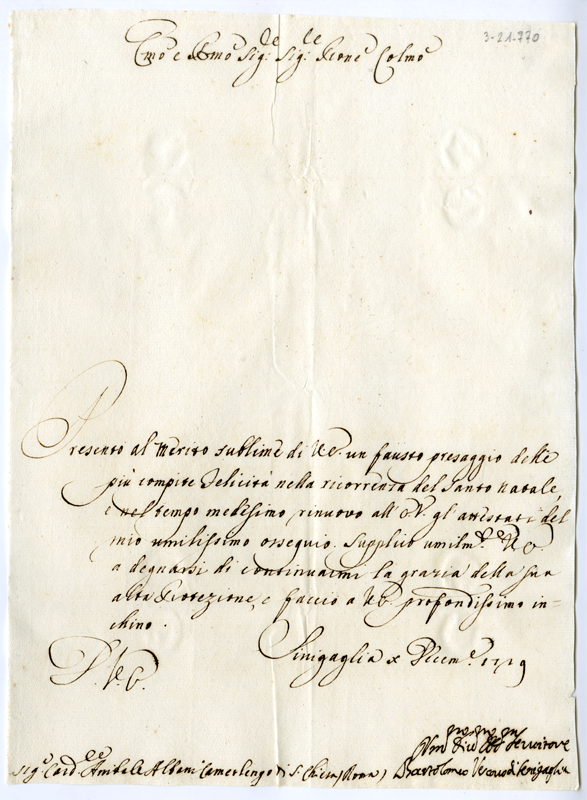 3-21-770
Emo e Rmo Sig:re Sig:re Prone Colmo
Presento al merito sublime di V.E. un fausto presaggio delle
più compite felicità nella ricorrenza del Santo natale,
e nel tempo medesimo rinuovo all' E.V. gl' attestati del
mio umilissimo ossequio. Supplico umilm.te V.E.
a degnarsi di continuarmi la grazia della sua
alta Protezione, e faccio a V.E. profondissimo in=
chino.
D. V. E.
Sinigaglia x Dicem.e 1719
Sig.r Card.le Anibale Albani Camerlengo di S. Chiesa (Roma)
Umo Divo Obbo Servitore
Bartolomeo Vescovo di Senigaglia